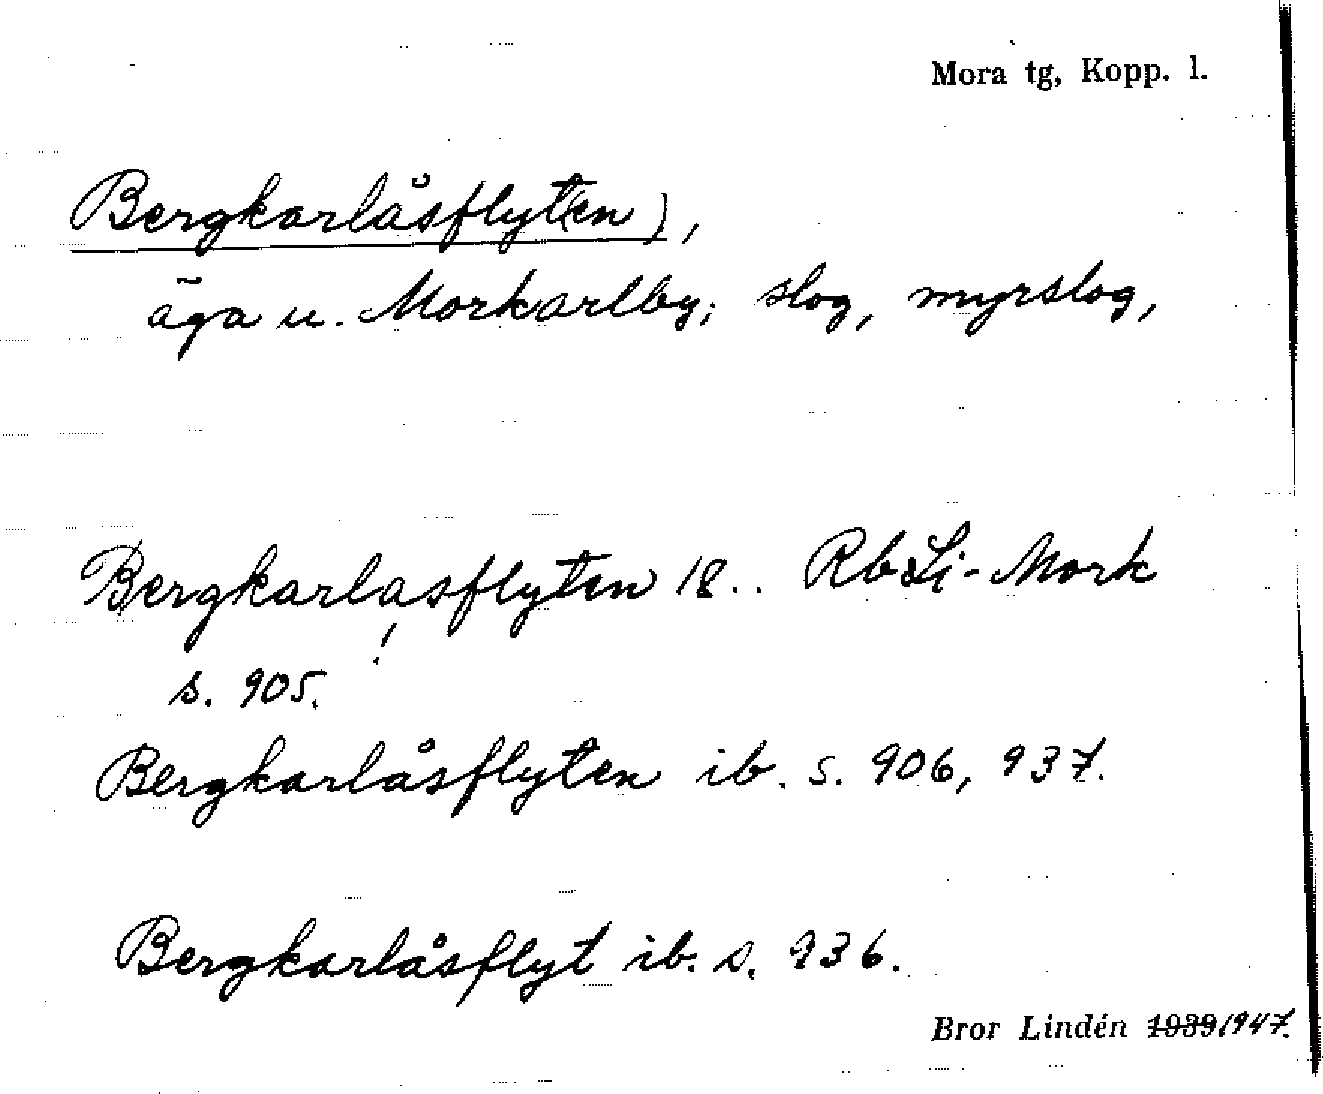 Mora tg, Kopp. l.
Bergkarlåsflyt(en),
äga u. Morkarlby; slog, myrslog,
Bergkarlasflyten 18.. RbLi-Mork
!
s. 905.
Bergkarlåsflyten ib. s. 906, 937.
Bergkarlåsflyt ib. s. 936.
Bror Lindén 1939 1947.